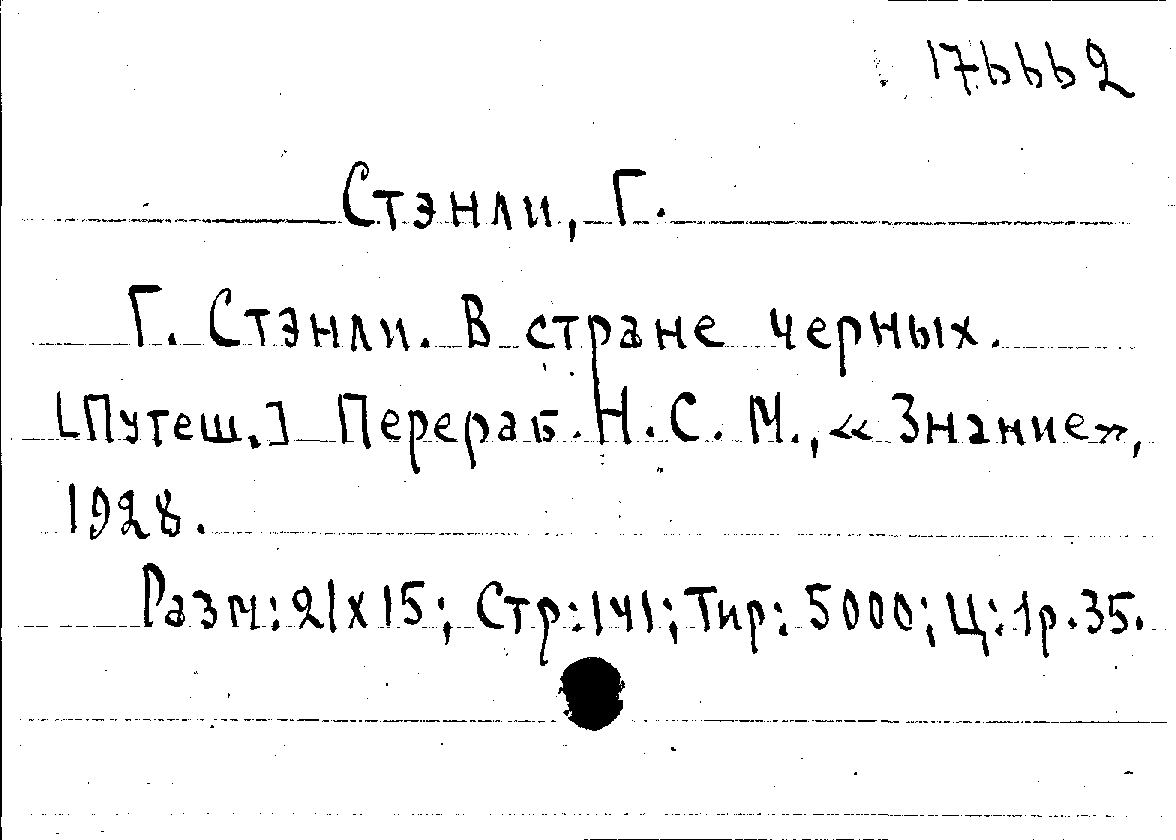 176662
Стэнли, Г.
Г. Стэнли. В стране черных.
[Путеш.] Перераб. Н. С. М., «Знание»,
1928.
Разм: 21x15; Стр: 141; Тир: 5000; Ц: 1р. 35.